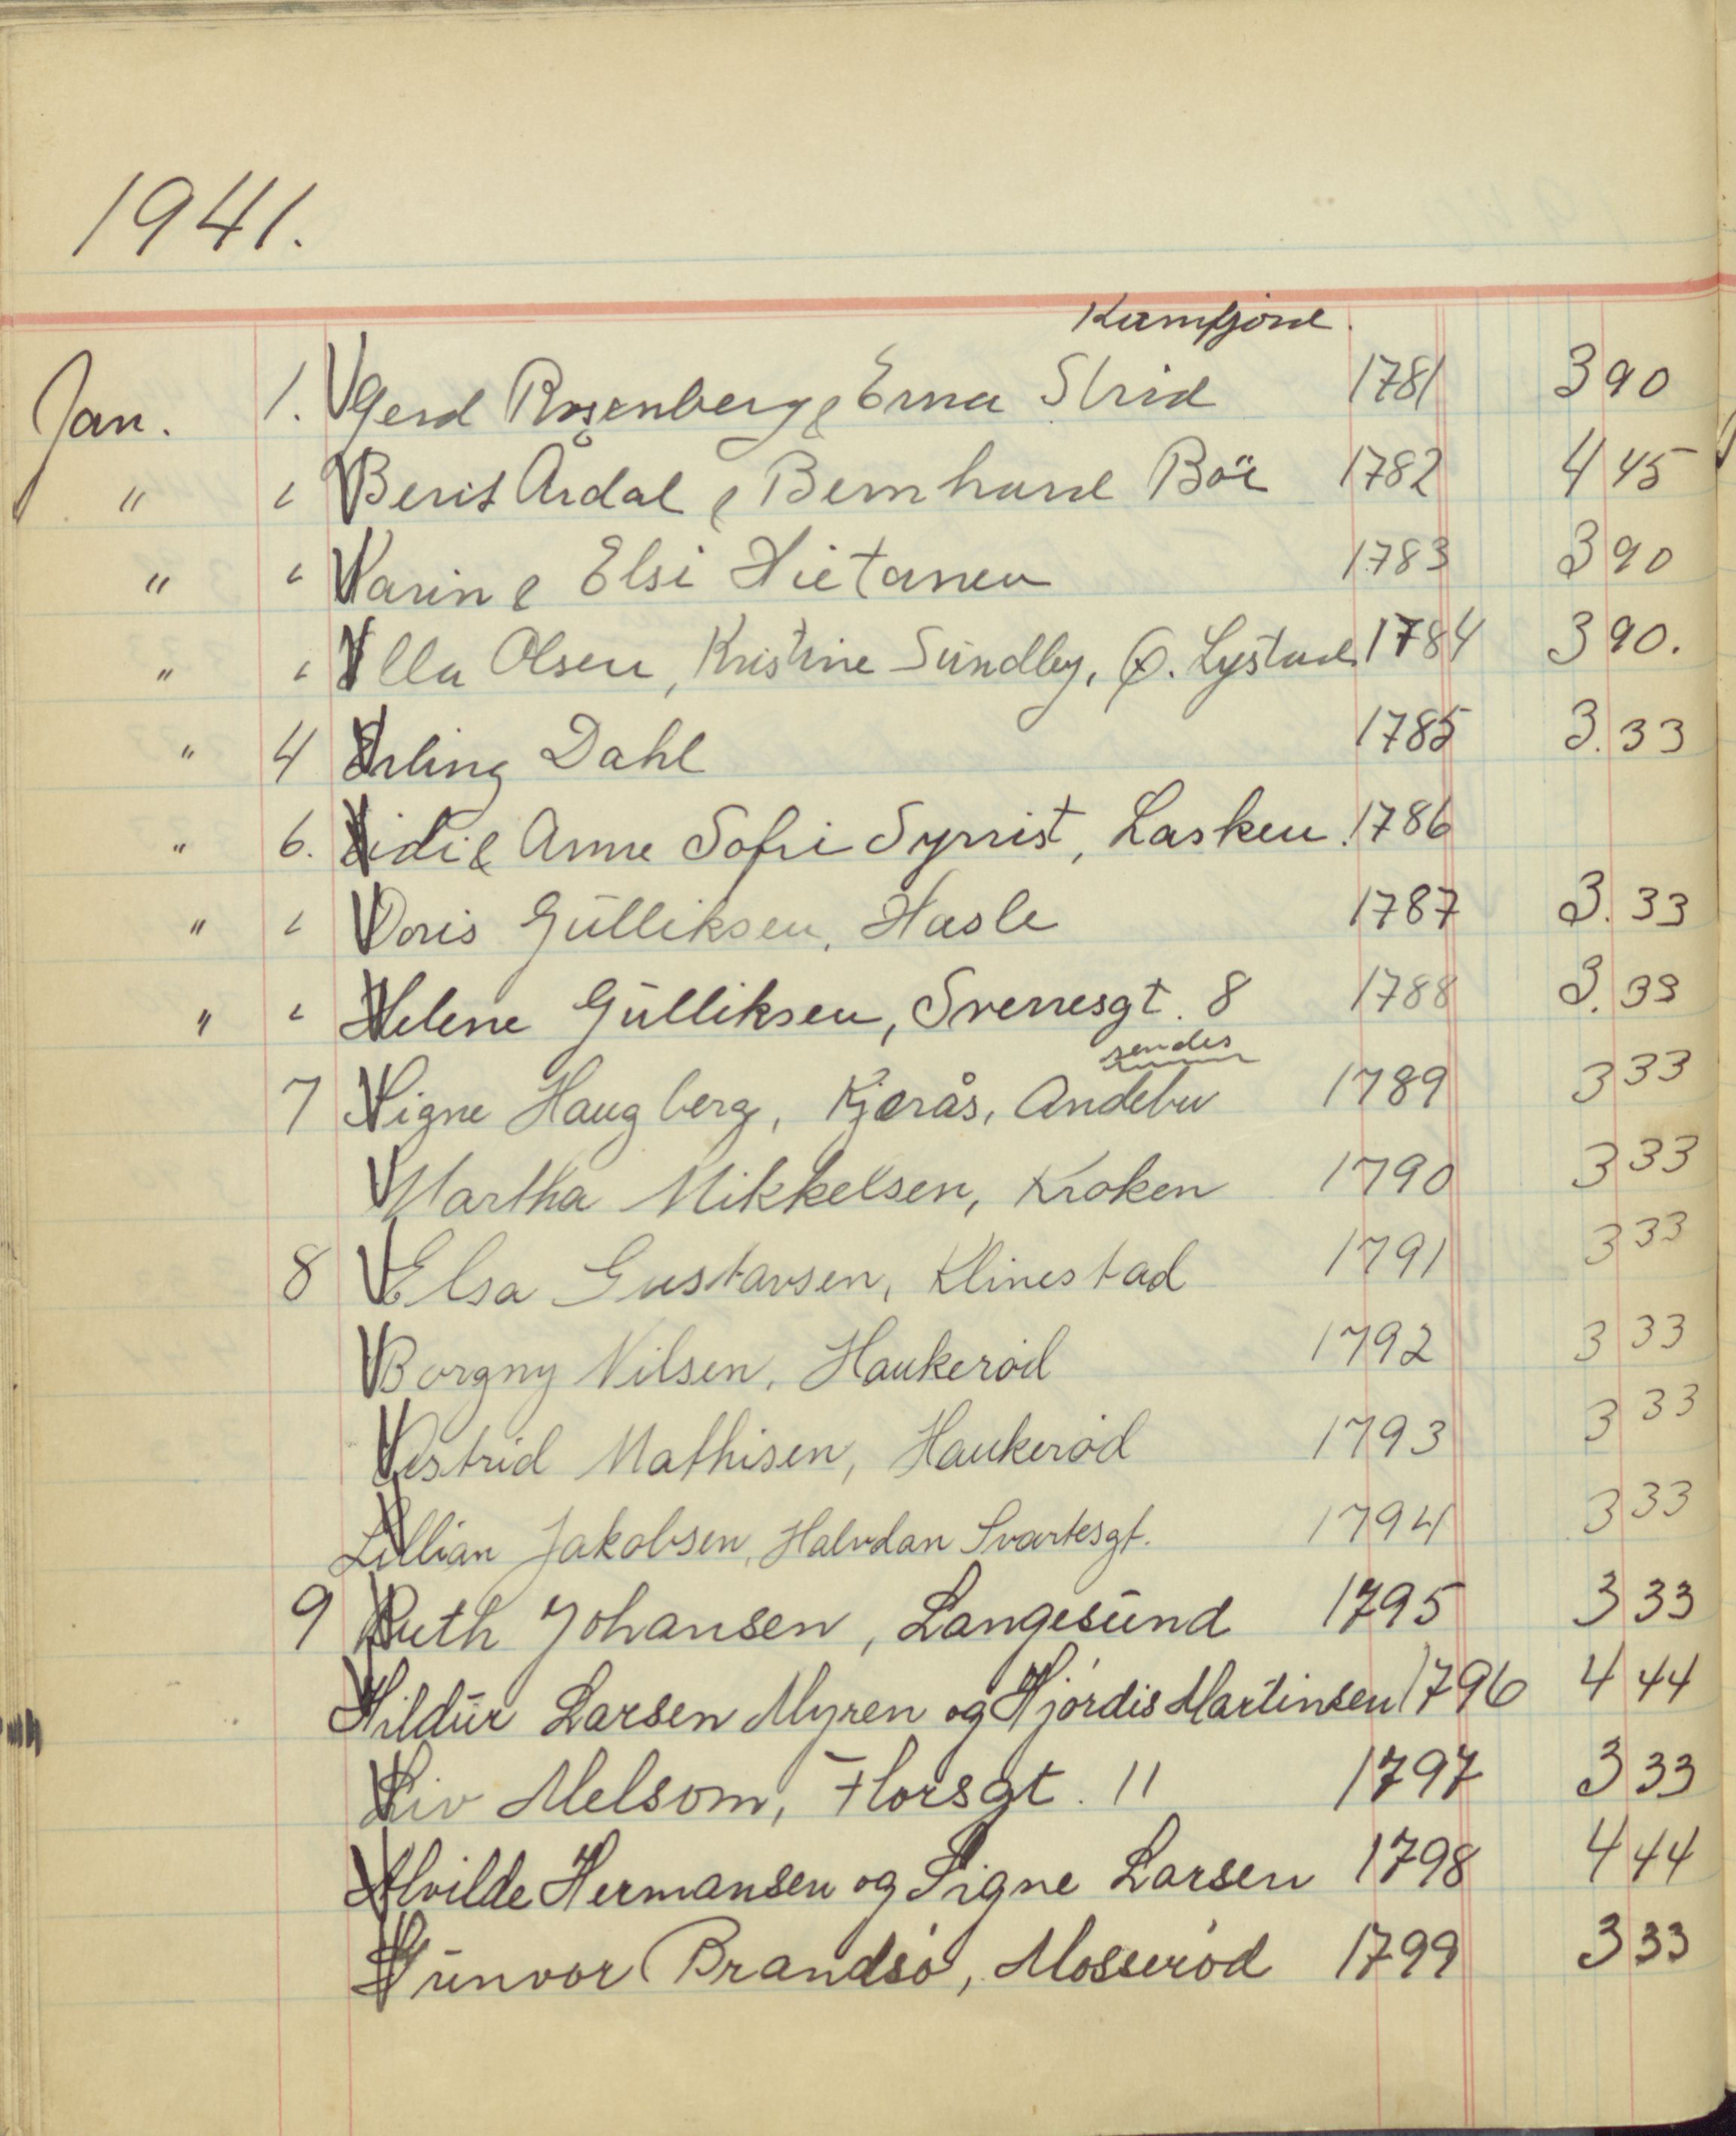 1941.
Kamfjord.
Jan. 1. Gerd Rosenberg & Erna Strid 1781 3 90
" " Berit Årdal & Bernhard Böe 1782 4 45
" " Karin & Elsi Hietanen 1783 3 90
" " Ella Olsen, Kristine Sundby, O. Lystad 1784 3 90.
" 4 Erling Dahl 1785 3. 33
" 6. Eidi & Anne Sofi Syrrist, Lasken. 1786
" " Doris Gulliksen, Hasle 1787 3. 33
" " Helene Gulliksen, Sverresgt. 8 1788 3. 33
sendes
7 Signe Haugberg, Kjærås, Andebu 1789 3 33
Martha Mikkelsen, Kroken 1790 3 33
8 Elsa Gustavsen, Klinestad 1791 3 33
Borgny Nilsen, Haukeröd 1792 3 33
Astrid Mathisen, Haukeröd 1793 3 33
Lillian Jakobsen, Halvdan Svartesgt. 1794 3 33
9 Ruth Johansen, Langesund 1795 3 33
Hildur Larsen Myren og Hjördis Martinsen 1796 4 44
Liv Melsom, Thorsgt. 11 1797 3 33
Alvilde Hermansen og Signe Larsen 1798 4 44
Gunvor Brandsö, Mosseröd 1799 3 33